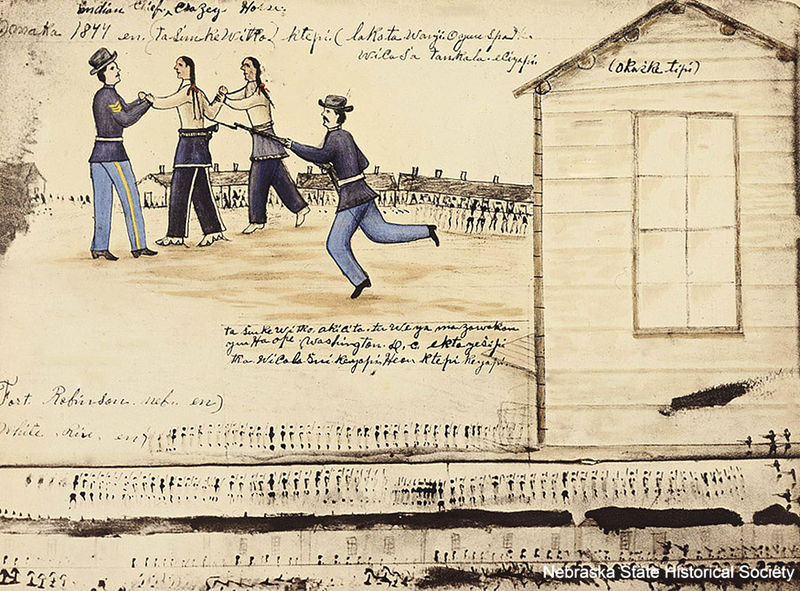 Indian Chief, Crazey Horse.
1877 en (ta Sunke Witko) ktepi (lakota Wanji Oyuspa
Wicasa tankala eciyapi
(Okaske tipi)
ta Sunke Witko akicita ta we ya mazawakan
yuha ope Washington. D. C ekta yesipi
tka Wicala Sni keyapi Heon ktepi keyapi.
Fort Robinson neb. en)
White en)
Nebraska State Historical Society